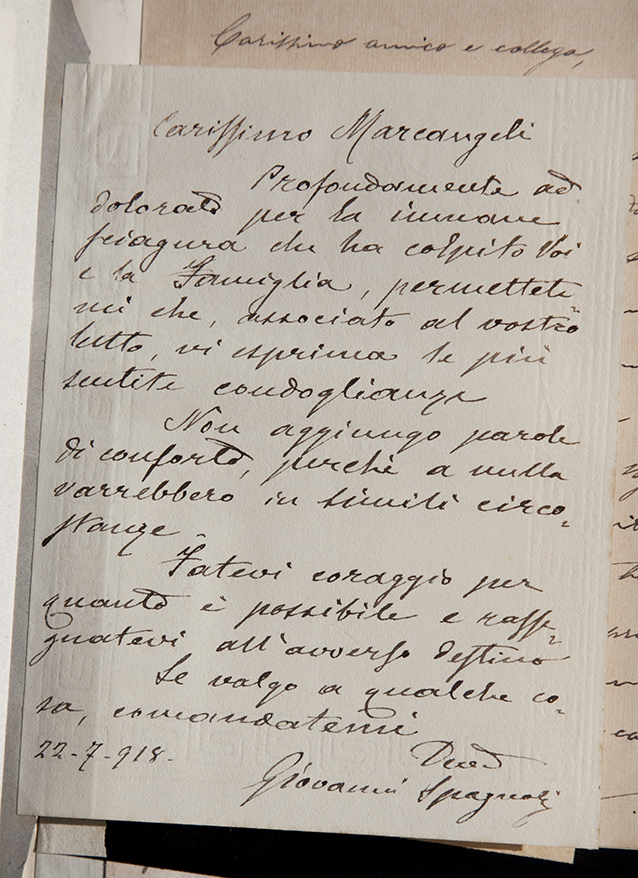 Carissimo amico e collega,
Carissimo Marcangeli
Profondamente ad
dolorato per la immane
sciagura che ha colpito Voi
e la Famiglia, permettete
mi che, associato al vostro
lutto, vi esprima le più
sentite condoglianze
Non aggiungo parole
di conforto, perchè a nulla
varrebbero in simili circo=
stanze.
Fatevi coraggio per
quanto è possibile e rasse=
gnatevi all'avverso destino
Se valgo a qualche co=
sa, comandatemi
22-7-918.
Giovanni Spagnoli